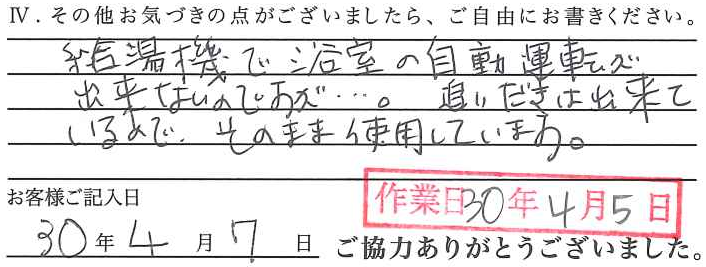 Ⅳ．その他お気づきの点がございましたら、ご自由にお書きください。
給湯機で浴室の自動運転が
出来ないのですが…。追いだきは出来て
いるので、そのまま使用しています。
お客様ご記入日
作業日30年4月5日
30年4月7日 ご協力ありがとうございました。